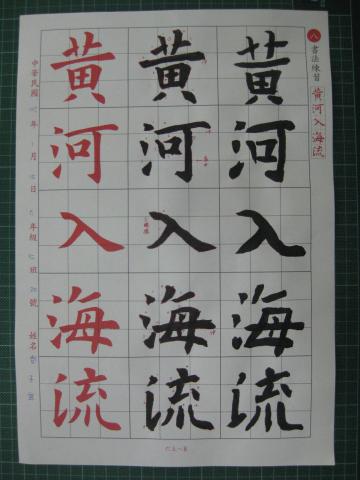 八 書法練習 黃河入海流
黃河入海流
黃河入海流
黃河入海流
中華民國 年 月 日 年級 班 號 姓名